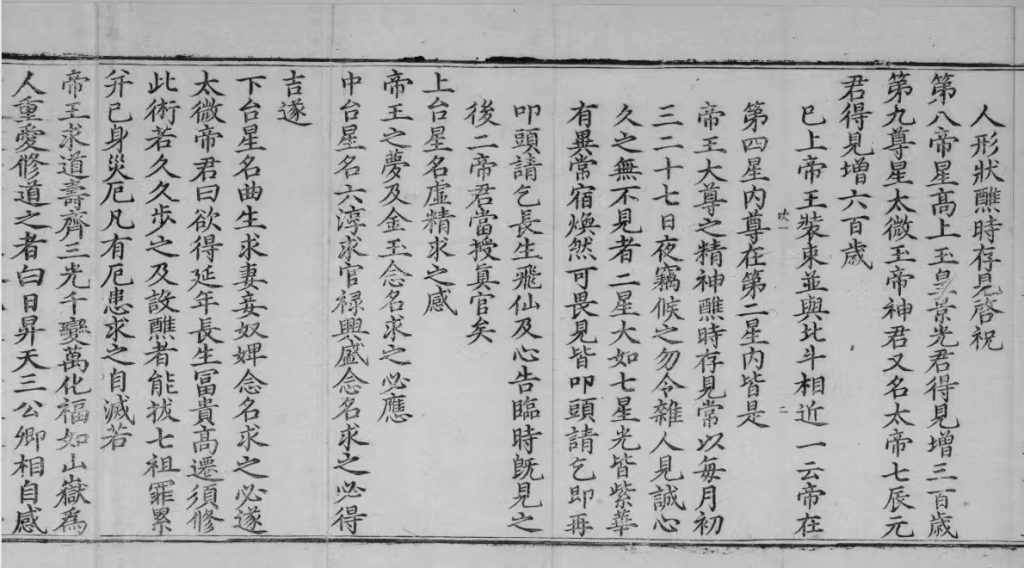 人形狀醮時存見啓祝
第八帝星高上玉皇景光君得見增三百歲
第九尊星太微玉帝神君又名太帝七辰元
君得見增六百歲
已上帝王裝束並與北斗相近一云帝在
第四星內尊在第二星內皆是
帝王大尊之精神醮時存見常以每月初
三二十七日夜竊候之勿令雜人見誠心
久之無不見者二星大如七星光皆紫華
有異常宿煥然可畏見皆叩頭請乞即再
叩頭請乞長生飛仙及心告臨時旣見之
後二帝君當授真官矣
上台星名虛精求之感
帝王之夢及金玉念名求之必應
中台星名六淳求官祿興感念名求之必得
吉遂
下台星名曲生求妻妾奴婢念名求之必遂
太微帝君曰欲得延年長生冨貴高遷須修
此術若久久步之及設醮者能拔七祖罪累
并已身災厄凡有厄患求之自滅若
帝王求道壽齊三光千變萬化福如山嶽爲
人重愛修道之者白日昇天三公卿相自感